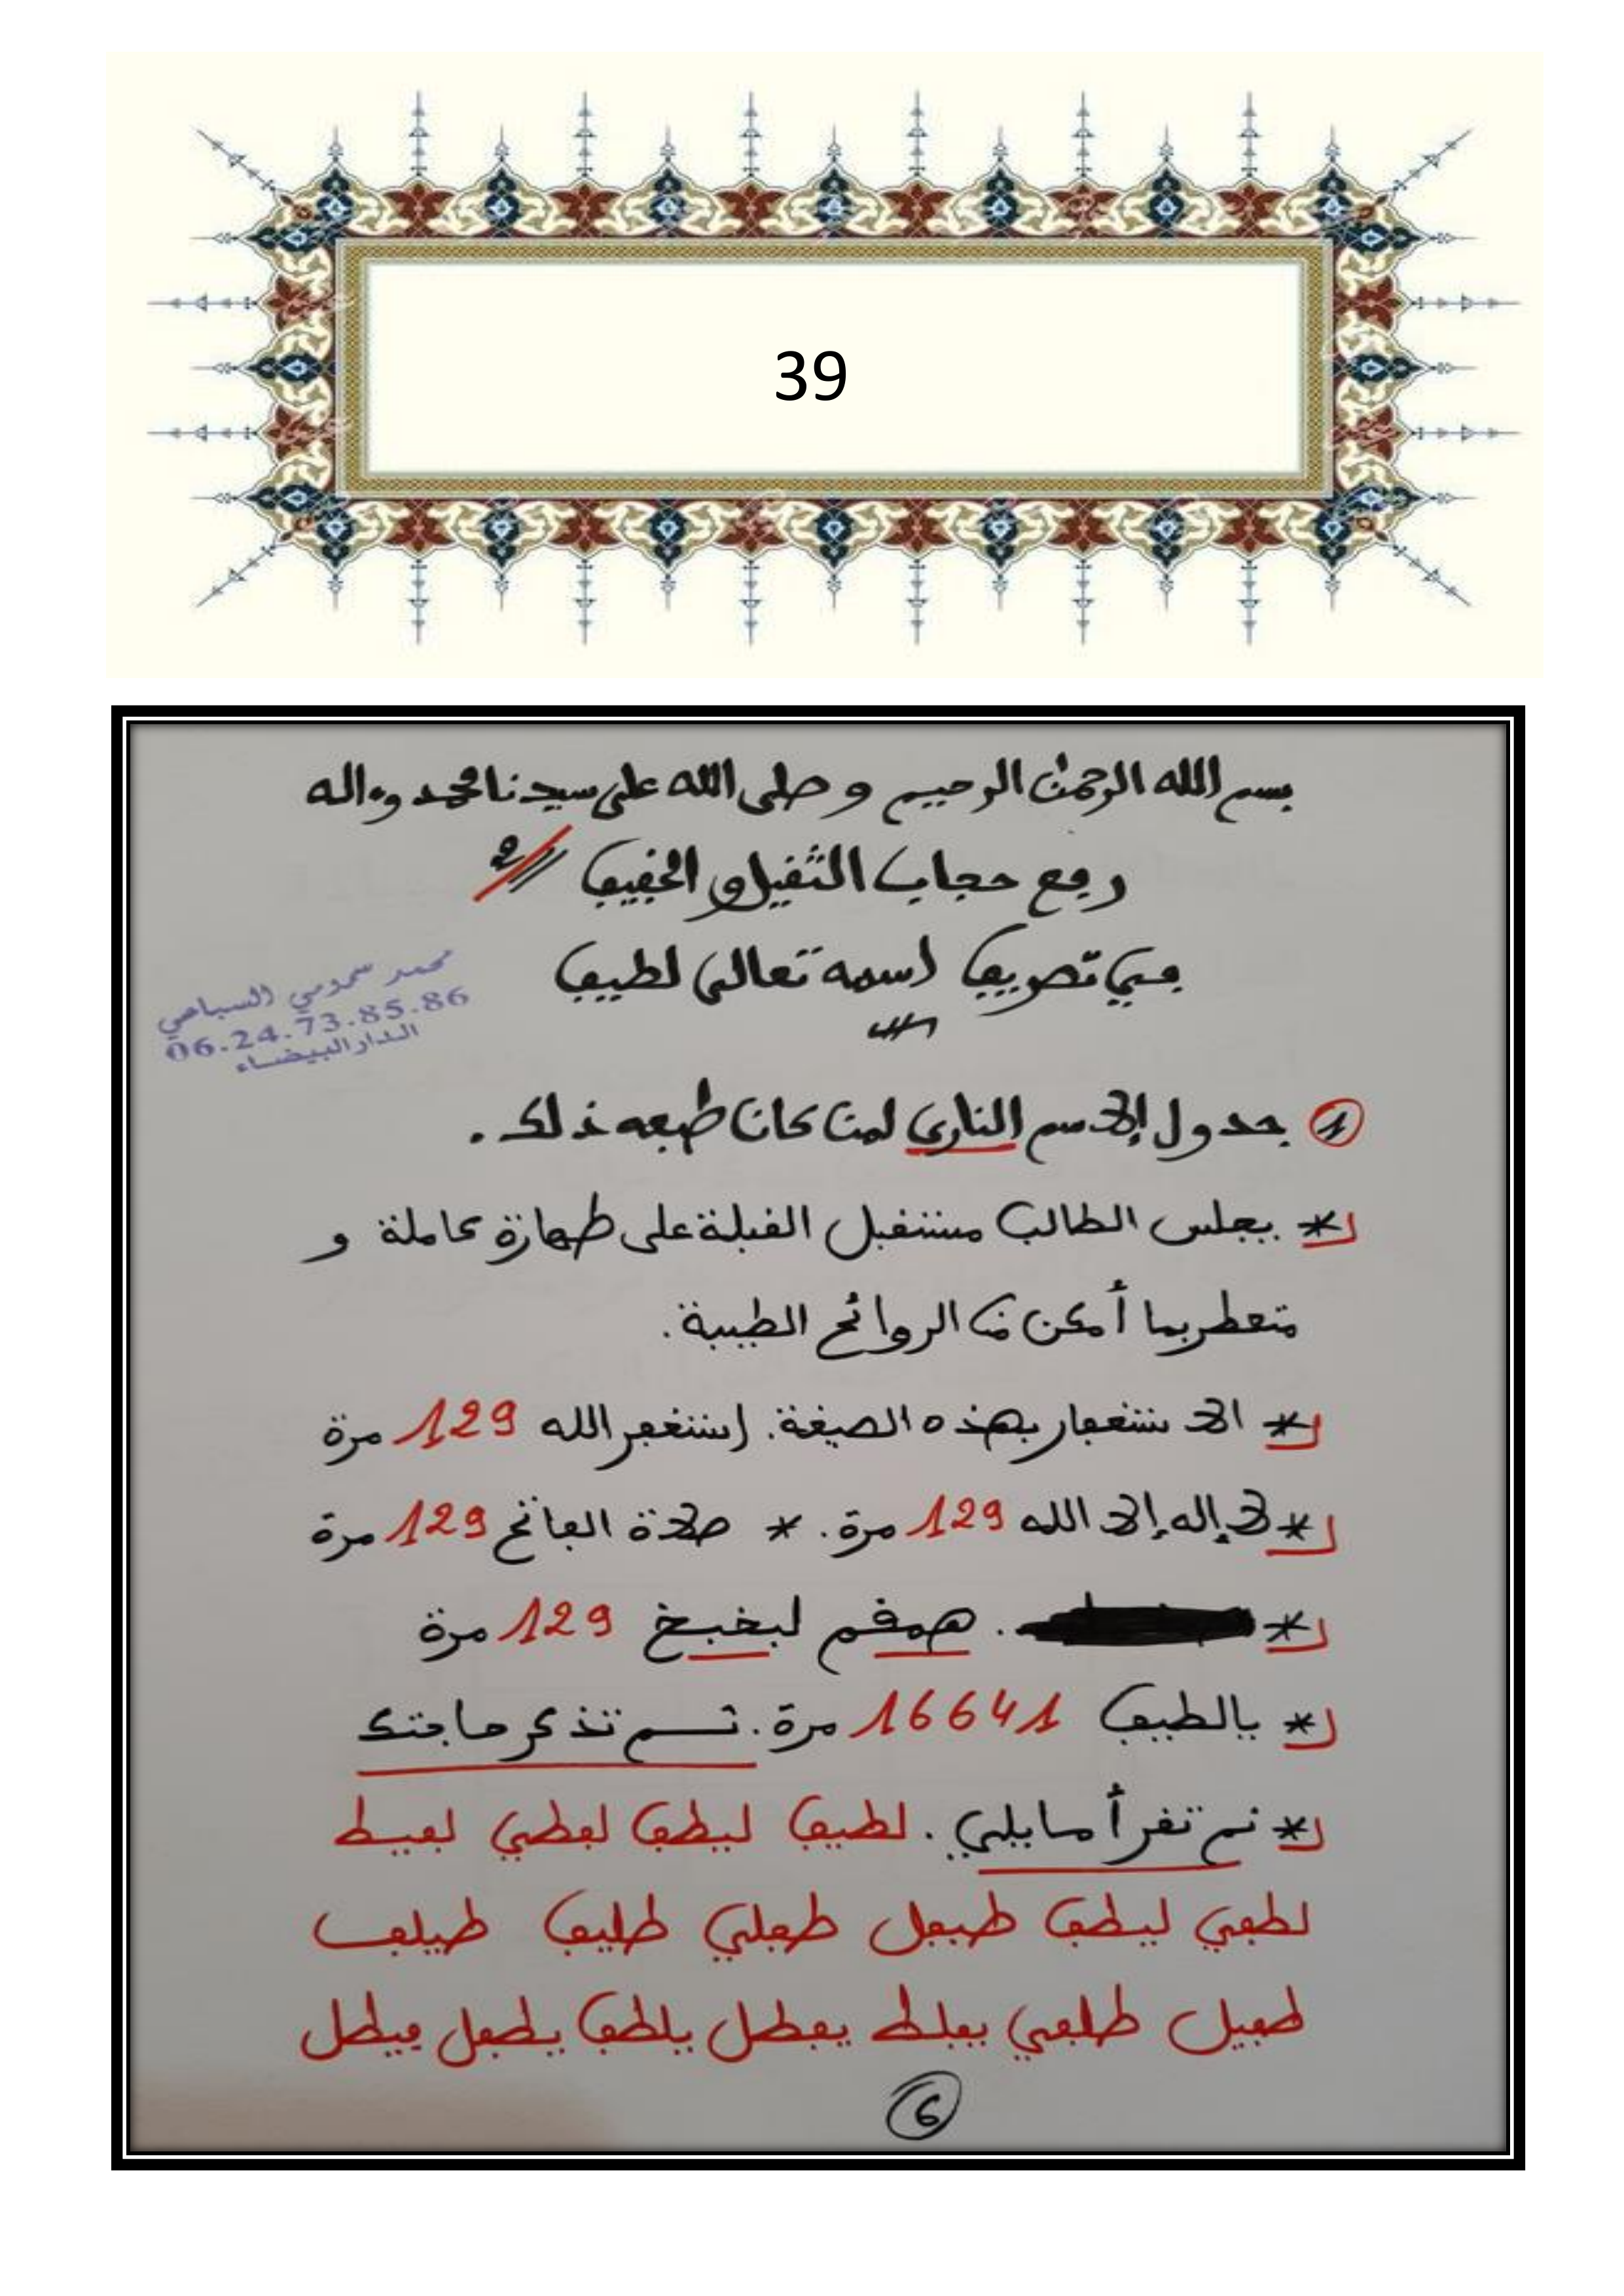 39
بسم الله الرحمن الرحيم و صلى الله على سيدنا محمد وءاله
رفع حجاب الثقيل و الخفيف
في تصريف اسمه تعالى لطيف
محمد سمومي السباعي
06.24.73.85.86
الدار البيضاء
1 جدول الاسم الناري لمن كان طبعه ذلك.
* يجلس الطالب مستقبل القبلة على طهارة كاملة و
متعطر بما أمكن من الروائح الطيبة.
* الاستغفار بهذه الصيغة. استغفر الله 129 مرة
* لا إله إلا الله 129 مرة. * صلاة الفاتح 129 مرة
* . همقم لبخبخ 129 مرة
* يالطيف 16641 مرة. ثم تذكر حاجتك
* ثم تقرأ ما يلي. لطيف ليطف لفطي لفيط
لطفي ليطف طيفل طفلي طليف طيلف
طفيل طلفي يفلط يفطل يلطف يطفل فيطل
6